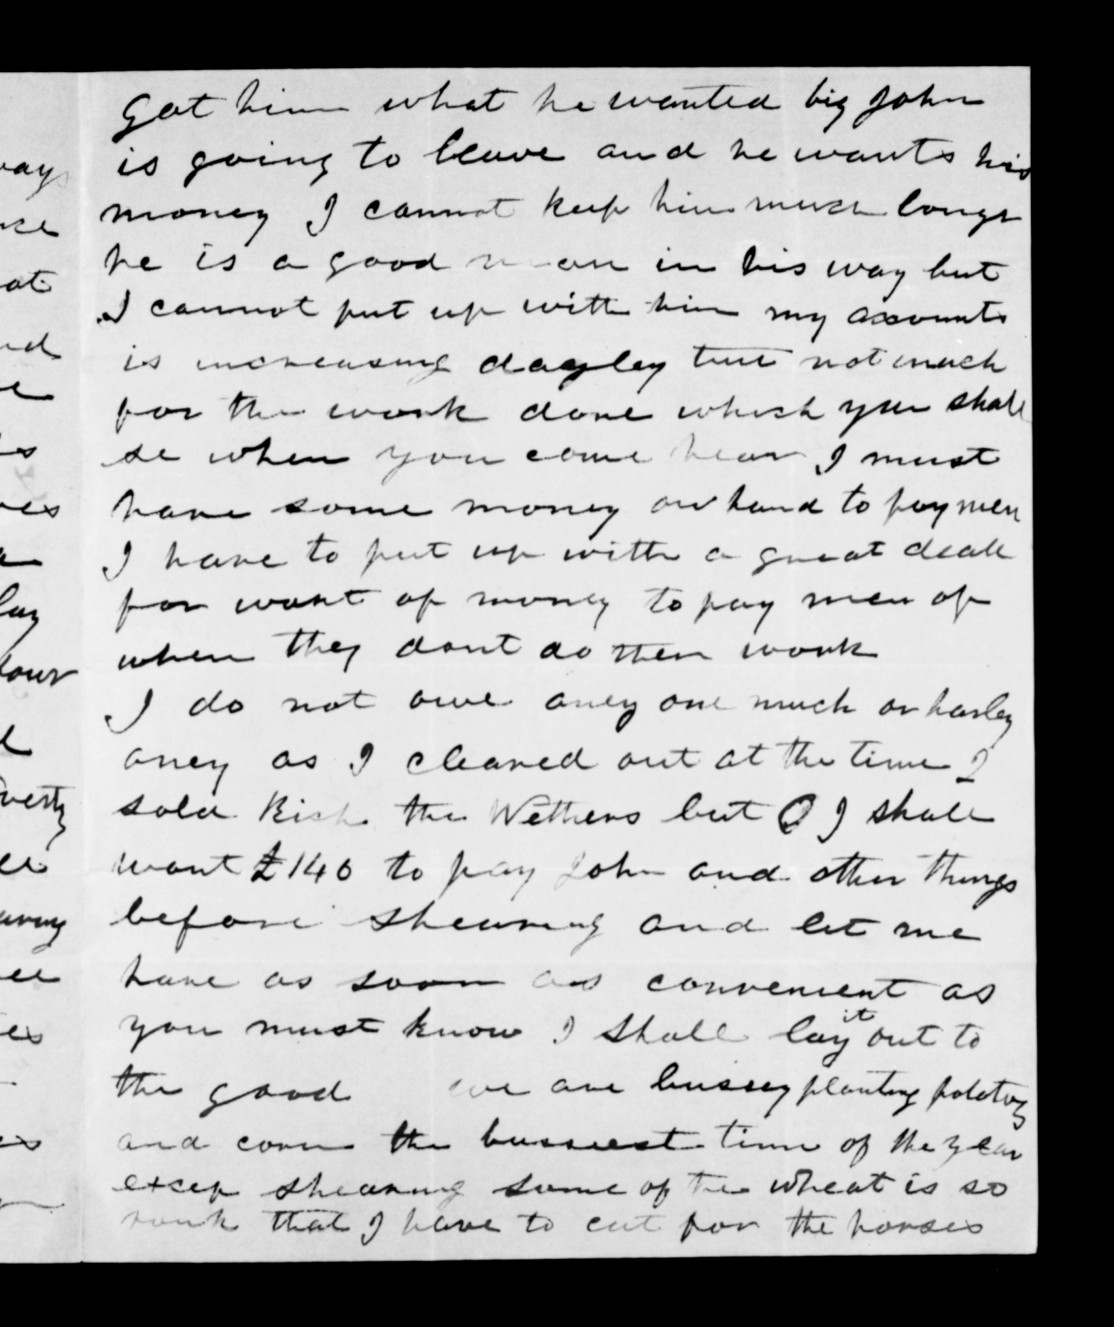 Got him what he wanted big John
is going to leave and he wants his
money I cannot keep him much longr
he is a good man in his way but
I cannot put up with him my acounts
is increasing dayley but not much
for the work done which you shall
se when you come hear I must
have some money on hand to pay men
I have to put up with a great deall
for want of money to pay men of
when they dont do their work
I do not owe aney one much or harley
aney as I cleared out at the time I
sold Rich the Wethers but O I shall
want £140 to pay John and other things
before shearing and let me
have as soon as convenient as
you must know I shall lay it out to
the good we are bussey planting potatoy
and corn the bussiest time of the year
excep shearing some of the wheat is so
rank that I have to cut for the horses